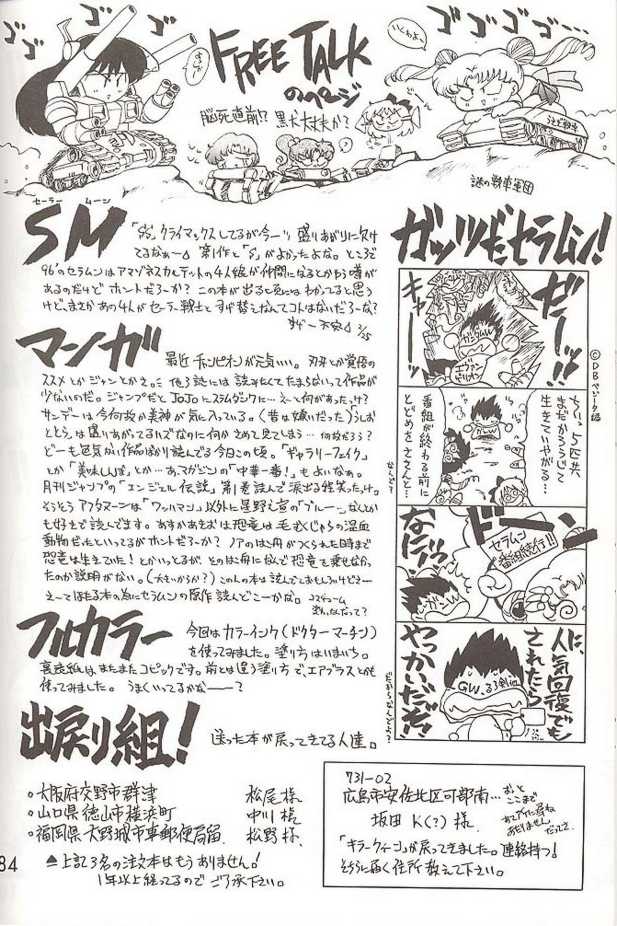 ゴゴゴ
FREE TALK
のページ
ゴゴゴゴ…
いくわよっ
脳死直前!?黒犬大丈夫か?
謎の戦車軍団
セーラー ムーン
SM
「S's」クライマックスしてるが今一ツ盛りあがりに欠け
てるなぁー△ 第1作と「S」がよかったよな。ところで
96'のセラムンはアマゾネスカルテットの4人娘が仲間になるとかもう噂が
あるのだけど ホントだろーか? この本が出る頃にはわかってると思う
けど、まさかあの4人がセーラー戦士とすげ替えなんてコトはないだろーな?
すげー不安△ 2/25
マンガ
最近チャンピオンが元気いい。刃牙とか覚悟の
ススメとかジャンとかと。 他3誌には読みたくてたまらないって作品が
少ないのだ。ジャンプだとJoJoにスラムダンクに…え〜と何があったっけ?
サンデーは今何故か美神が気に入っている。(昔は嫌いだった)うしお
ととらは盛りあがってるハズなのに何かさめて見てしまう…何故だろう?
どーも色気ない作品ばかり読んでる今日この頃。「ギャラリーフェイク」
とか「美味しんぼ」とか…あマガジンの「中華一番!」もよいなぁ。
月刊ジャンプの「エンジェル伝説」第1巻読んで涙出る程笑ったっけ。
そうそうアフタヌーンは「ワッハマン」以外に星野之宣の「ブルーワールド」なんか
も好きで読んでです。あすかあきおは恐竜は毛むくじゃらの温血
動物だったといってるがホントだろーか? ノアのはこ舟がつくられた時まで
恐竜は生きていた!とかいっとるが、そのはこ舟になんで恐竜を乗せなかっ
たのか説明がない。(大きいからか?)この人の本は読んでておもしろいけどさー
え〜てほたる本の為にセラムンの原作読んどこーかな。
フルカラー
今回はカラーインク(ドクターマーチン)
を使ってみました。塗り方はいまいち。
裏表紙はまたまたコピックです。前とは違う塗り方で、エアブラスとかも
使ってみました。うまくいってるかな———?
出戻り組!
送った本が戻ってきてる人達。
○大阪府交野市群津 松尾様
○山口県徳山市横浜町 中川様
○福岡県大野城市東郵便局留 松野様
▲上記3名の注文本はもうありません!
1年以上経ってるのでご了承下さい。
ガッツだセラムン!
©DBベジータ編
だーッ!!
キャー
ガンダムW
エヴァンゲリオン
ちいぃ5匹共
まだかろうじて
生きていやがる…
番組が終わる前に
とどめをささんと…
ドーン
セラムン
番組続行!!
なにィッ
人に人気回復でも
されたら
やっかいだぜ!
GW、るろ剣他
731-02
広島市安佐北区可部南…
おっと
ここまで
坂田 K(?)様
「キラークィーン」が戻ってきました。連絡待つ!
そちらに届く住所教えて下さい。
84